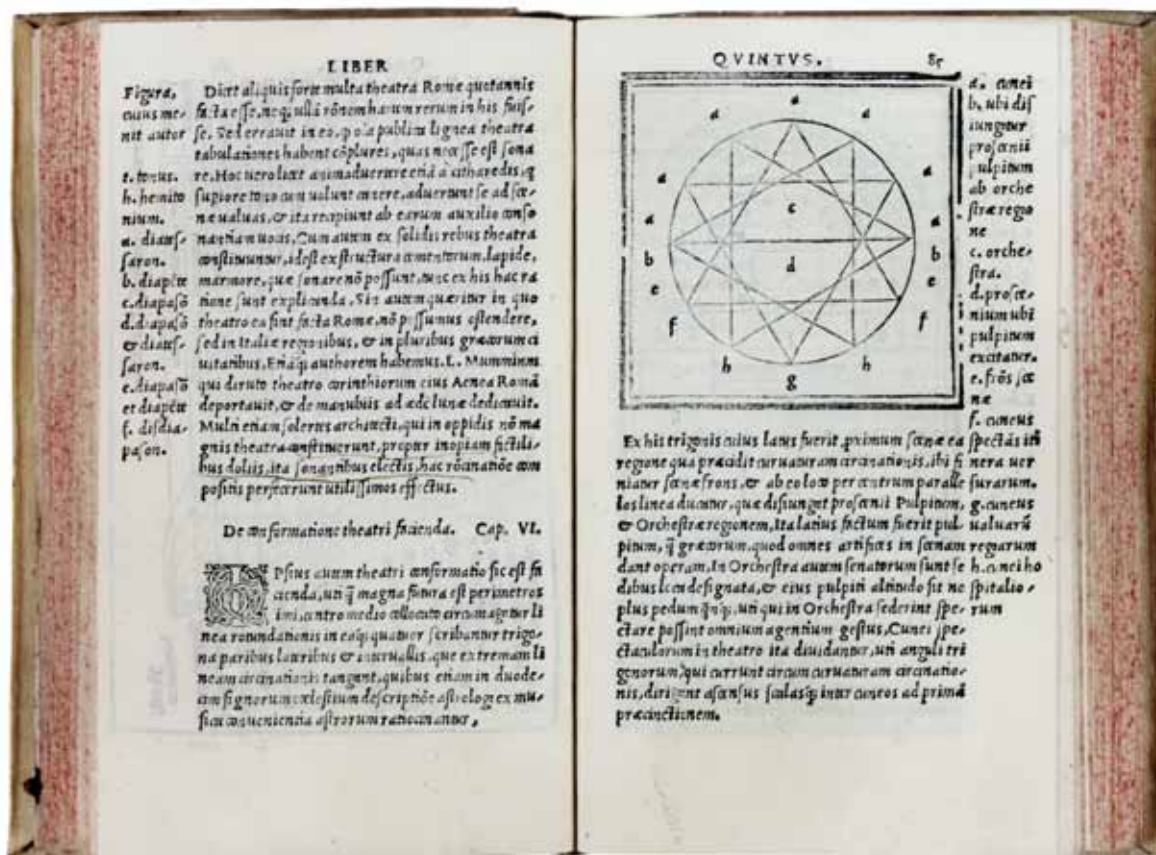 LIBER
Figura,
cuius me-
nit autor
t. tonus.
h. hemito
nium.
a. diates-
saron.
b. diapēte
c. diapasō
d. diapasō
& diates-
saron.
e. diapasō
et diapēte
f. disdia-
pason.
Dicet aliquis forte multa theatra Rome quotannis
facta esse, neq; ullā rōnem harum rerum in his fuis-
se. Sed errauit in eo, q̃ oīa publica lignea theatra
tabulationes habent cōplures, quas necesse est sona
re. Hoc uero licet animaduertere etiā a citharedis, q
supiore tono cum uolunt canere, aduertunt se ad sce-
næ ualuas, & ita recipiunt ab earum auxilio conso
nantiam uocis. Cum autem ex solidis rebus theatra
constituuntur, idest ex structura cementorum, lapide,
marmore, quæ sonare nō possunt, tunc ex his hac ra
tione sunt explicanda. Sin autem quæritur in quo
theatro ea sint facta Rome, nō possumus ostendere,
sed in Italiæ regionibus, & in pluribus græcorum ci
uitatibus. Etiā q; authorem habemus. L. Mummium
qui diruto theatro corinthiorum eius Aenea Romā
deportauit, & de manubiis ad ædē lunæ dedicauit.
Multi etiam solertes architecti, qui in oppidis nō ma
gnis theatra constituerunt, propter inopiam fictili-
bus doliis, ita sonantibus electis, hac rōcinatiōe com
positis perfecerunt utilissimos effectus.
De conformatione theatri facienda. Cap. VI.
IPsius autem theatri conformatio sic est fa
cienda, uti q̃ magna futura est perimetros
imi, centro medio collocato circumagatur li
nea rotundationis in eaq; quatuor scribantur trigo-
na paribus lateribus & interuallis, que extremam li
neam circinationis tangant, quibus etiam in duode-
cim signorum cœlestium descriptiōe astrologi ex mu-
sica conuenientia astrorum ratiocinantur,
QVINTVS. 85
a a a
a a
a a
b b
c
d
e e
f f
h h
g
a. cunei
b. ubi dis
iungitur
proscenii
pulpitum
ab orche
stræ regio
ne
c. orche-
stra.
d. prosce-
nium ubi
pulpitum
excitatur.
e. frōs sce
næ
f. cuneus
spectās iti
nera uer
surarum.
g. cuneus
ualuarū
regiarum
h. cunei ho
spitalio-
rum
Ex his trigonis cuius latus fuerit, pximum scenæ ea
regione qua præcidit curuaturam circinationis, ibi fi
niatur scenæ frons, & ab eo loco per centrum paralle
los linea ducatur, quæ disiungat proscenii Pulpitum,
& Orchestræ regionem, Ita latius factum fuerit pul
pitum, q̃ græcorum, quod omnes artifices in scenam
dant operam, In Orchestra autem senatorum sunt se
dibus loca designata, & eius pulpiti altitudo sit ne
plus pedum qnq;, uti qui in Orchestra sederint spe-
ctare possint omnium agentium gestus, Cunei spe-
ctaculorum in theatro ita diuidantur, uti anguli tri
genorum, qui currunt circum curuaturam circinatio-
nis, dirigent ascensus scalasq; inter cuneos ad primā
præcinctionem.